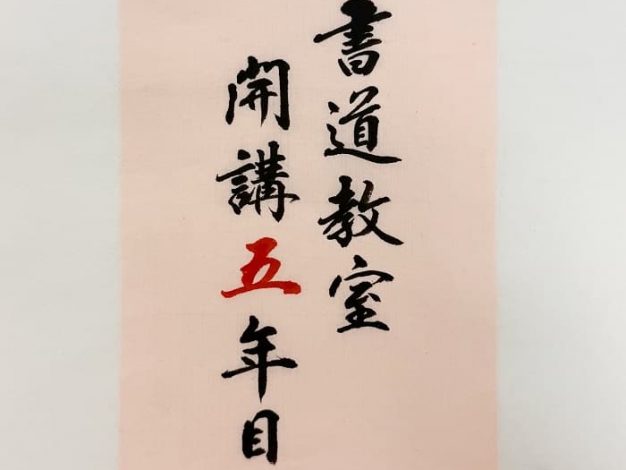 書道教室
開講五年目